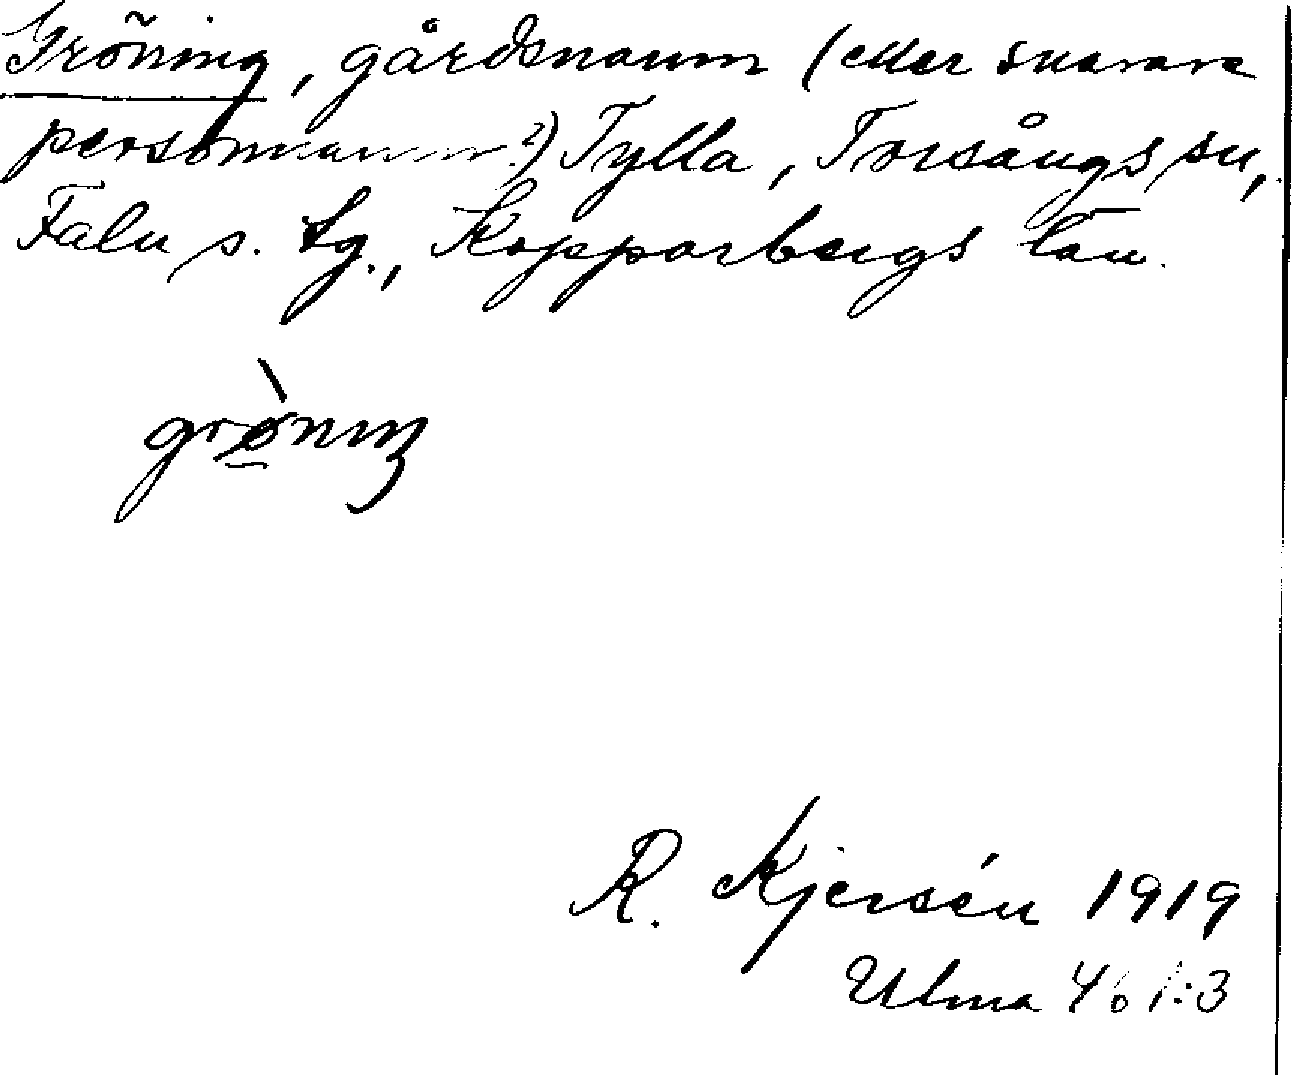 Gröning, gårdsnamn (eller snarare
personnamn?) Tylla, Torsångs sn,
Falu s. tg., Kopparbergs län.
grø̀niŋ
R. Kjersén 1919
Ulma 461:3